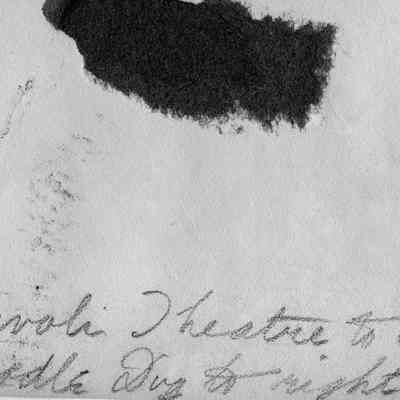 ivoli Theatre to
oodle Dog to right